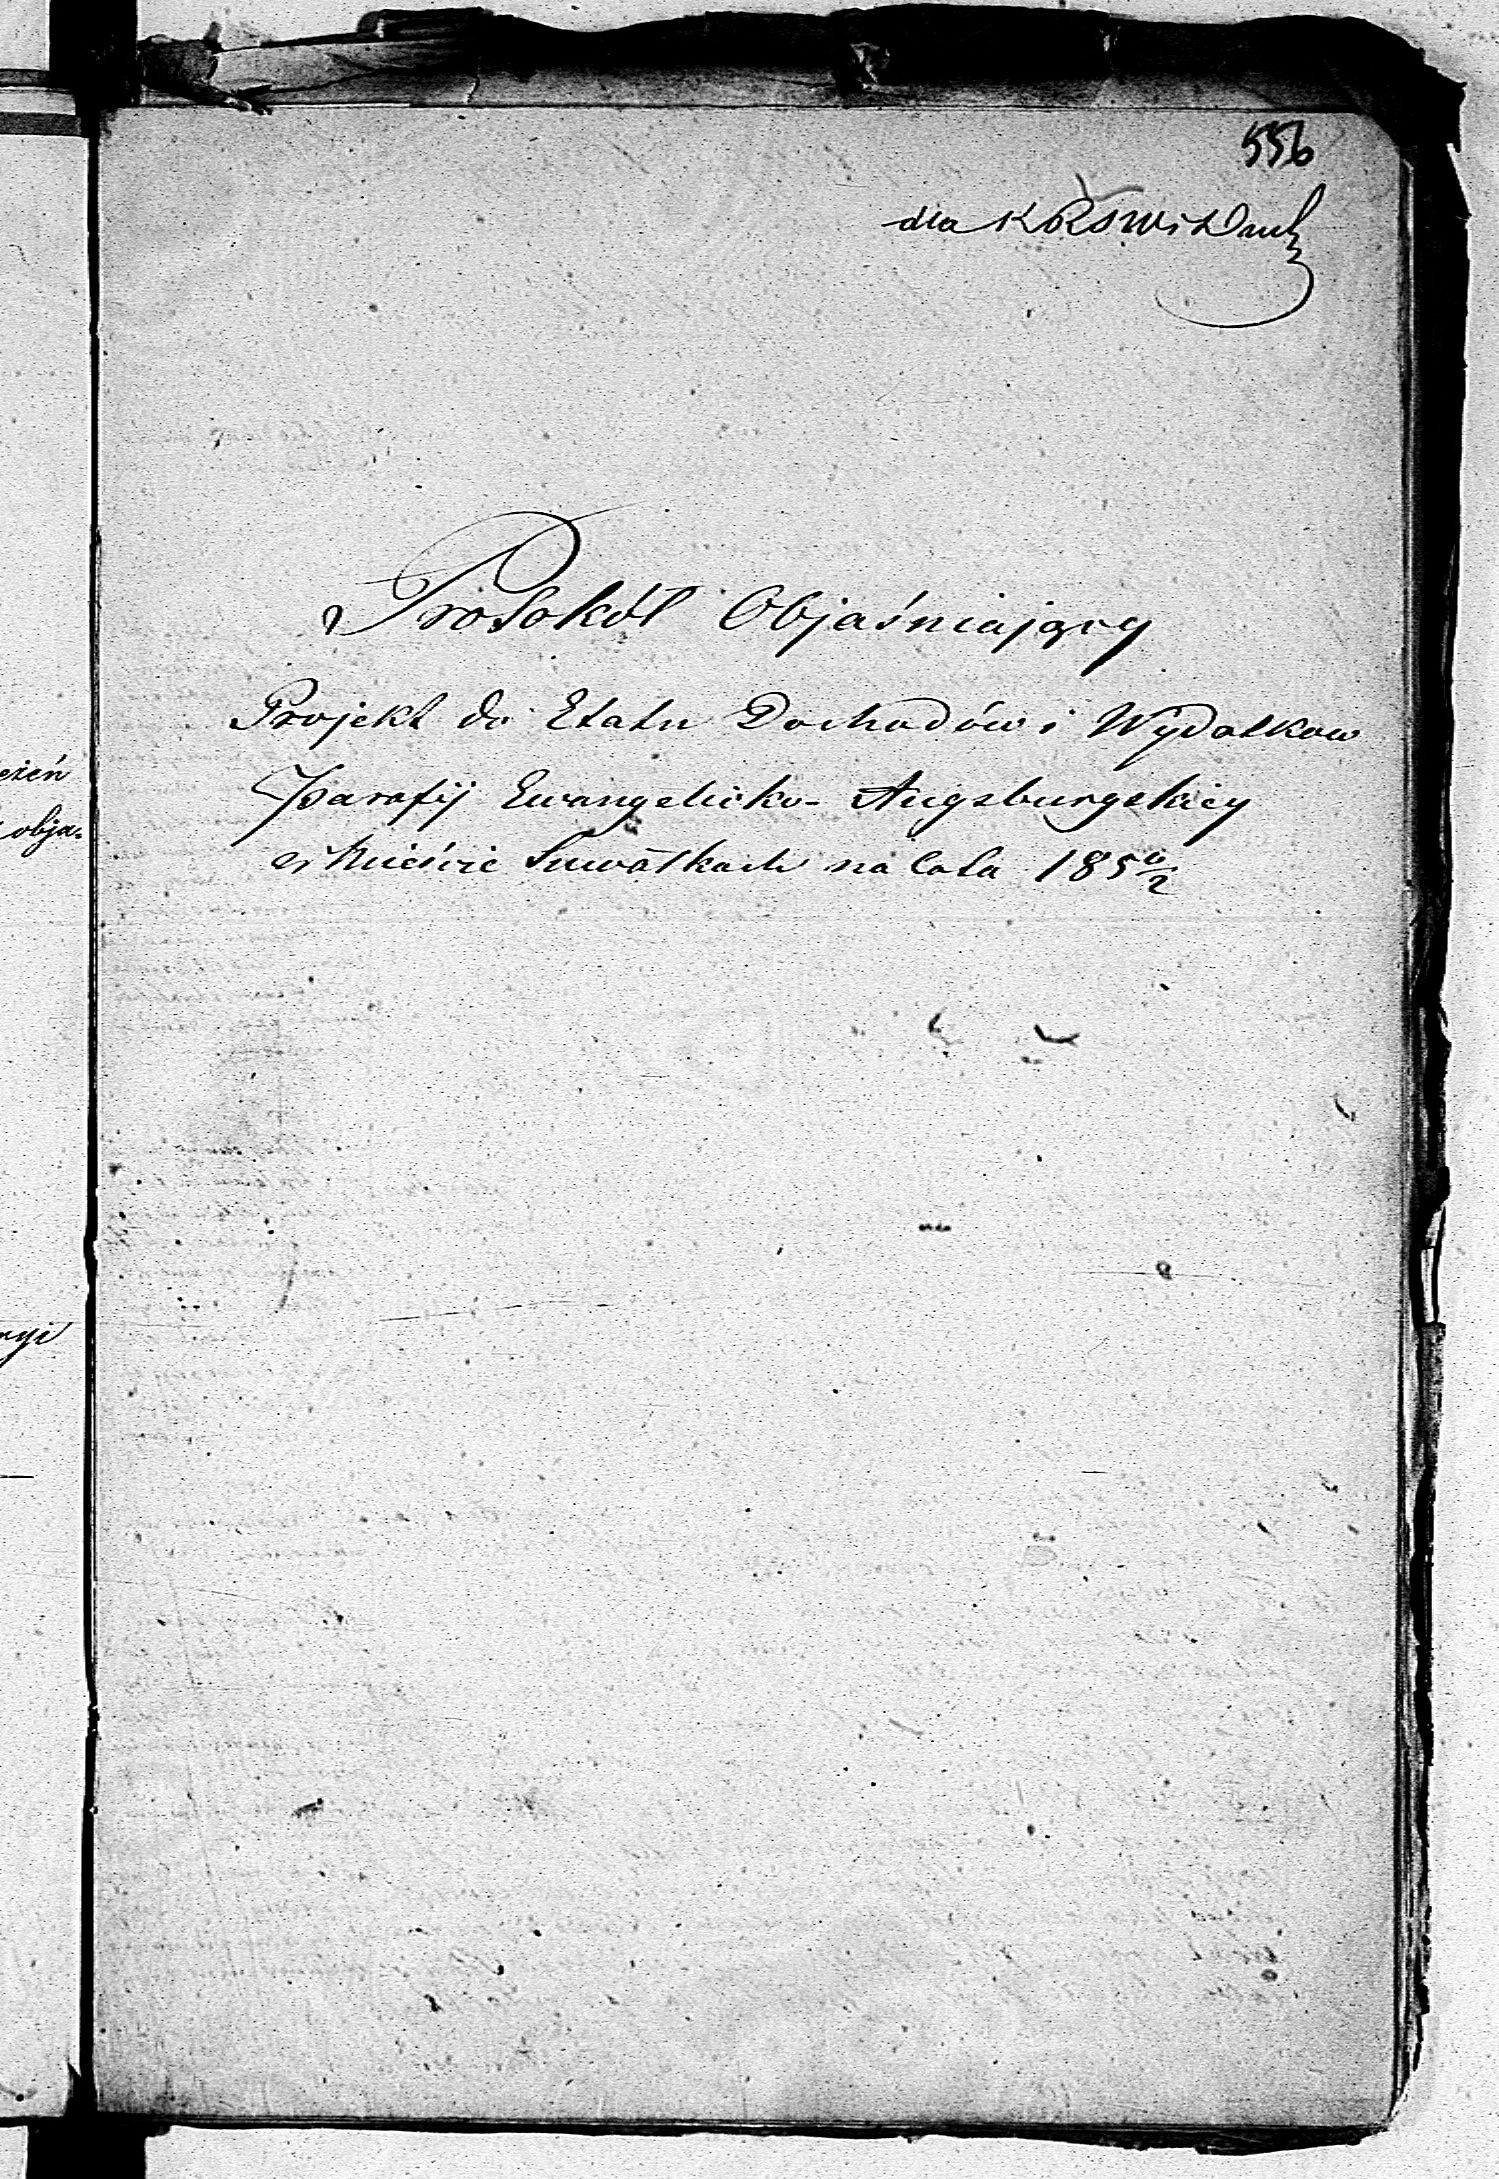 556
dla KRSW i Duch
eżeń
obja-
Protokół Objaśniający
Projekt do Etatu Dochodów i Wydatkow
Parafij Ewangelicko-Augsburgskiey
w Mieście Suwałkach na lata 185 6/2